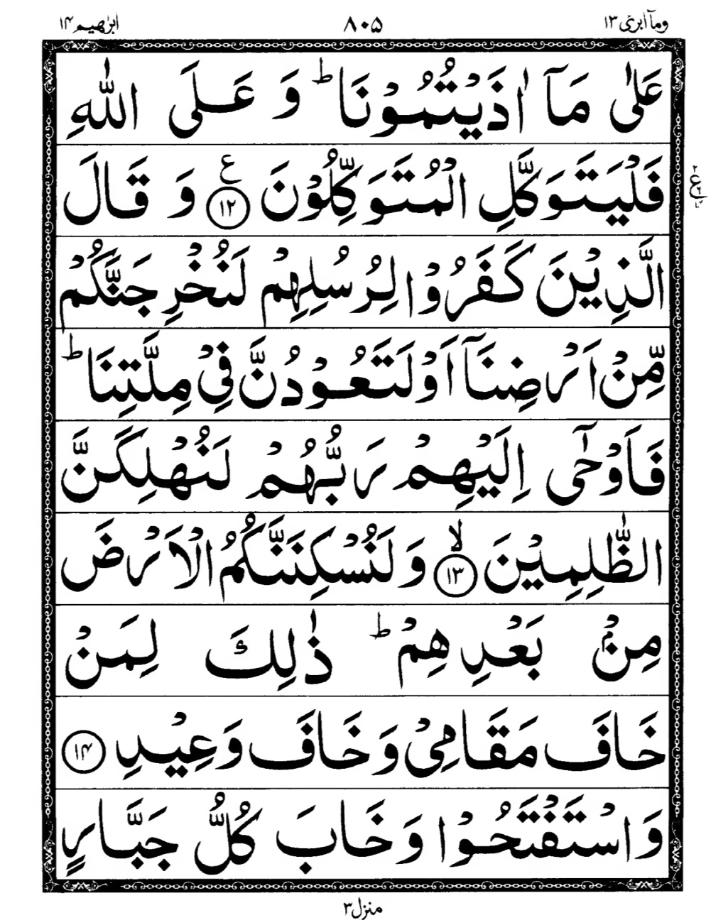 وما ابرئ ١٣
٨٠٥
ابرٰهیم ١۴
عَلٰی مَاۤ اٰذَیْتُمُوْنَا ؕ وَ عَلَی اللّٰهِ
فَلْیَتَوَكَّلِ الْمُتَوَكِّلُوْنَ ﴿١٢﴾ ع وَ قَالَ
الَّذِیْنَ كَفَرُوْا لِرُسُلِهِمْ لَنُخْرِجَنَّكُمْ
مِّنْ اَرْضِنَاۤ اَوْ لَتَعُوْدُنَّ فِیْ مِلَّتِنَا ؕ
فَاَوْحٰۤی اِلَیْهِمْ رَبُّهُمْ لَنُهْلِكَنَّ
الظّٰلِمِیْنَ ﴿١٣﴾ ۙ وَ لَنُسْكِنَنَّكُمُ الْاَرْضَ
مِنْۢ بَعْدِهِمْ ؕ ذٰلِكَ لِمَنْ
خَافَ مَقَامِیْ وَ خَافَ وَعِیْدِ ﴿١۴﴾
وَ اسْتَفْتَحُوْا وَ خَابَ كُلُّ جَبَّارٍ
منزل ٣